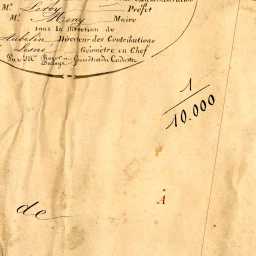 Mr. Leroy Préfet
Mr. Meny Maire
sous la direction de
Aubelin Directeur des Contributions
Géomètre en Chef
Par Mr.
du Cadastre
1
10.000
de
A